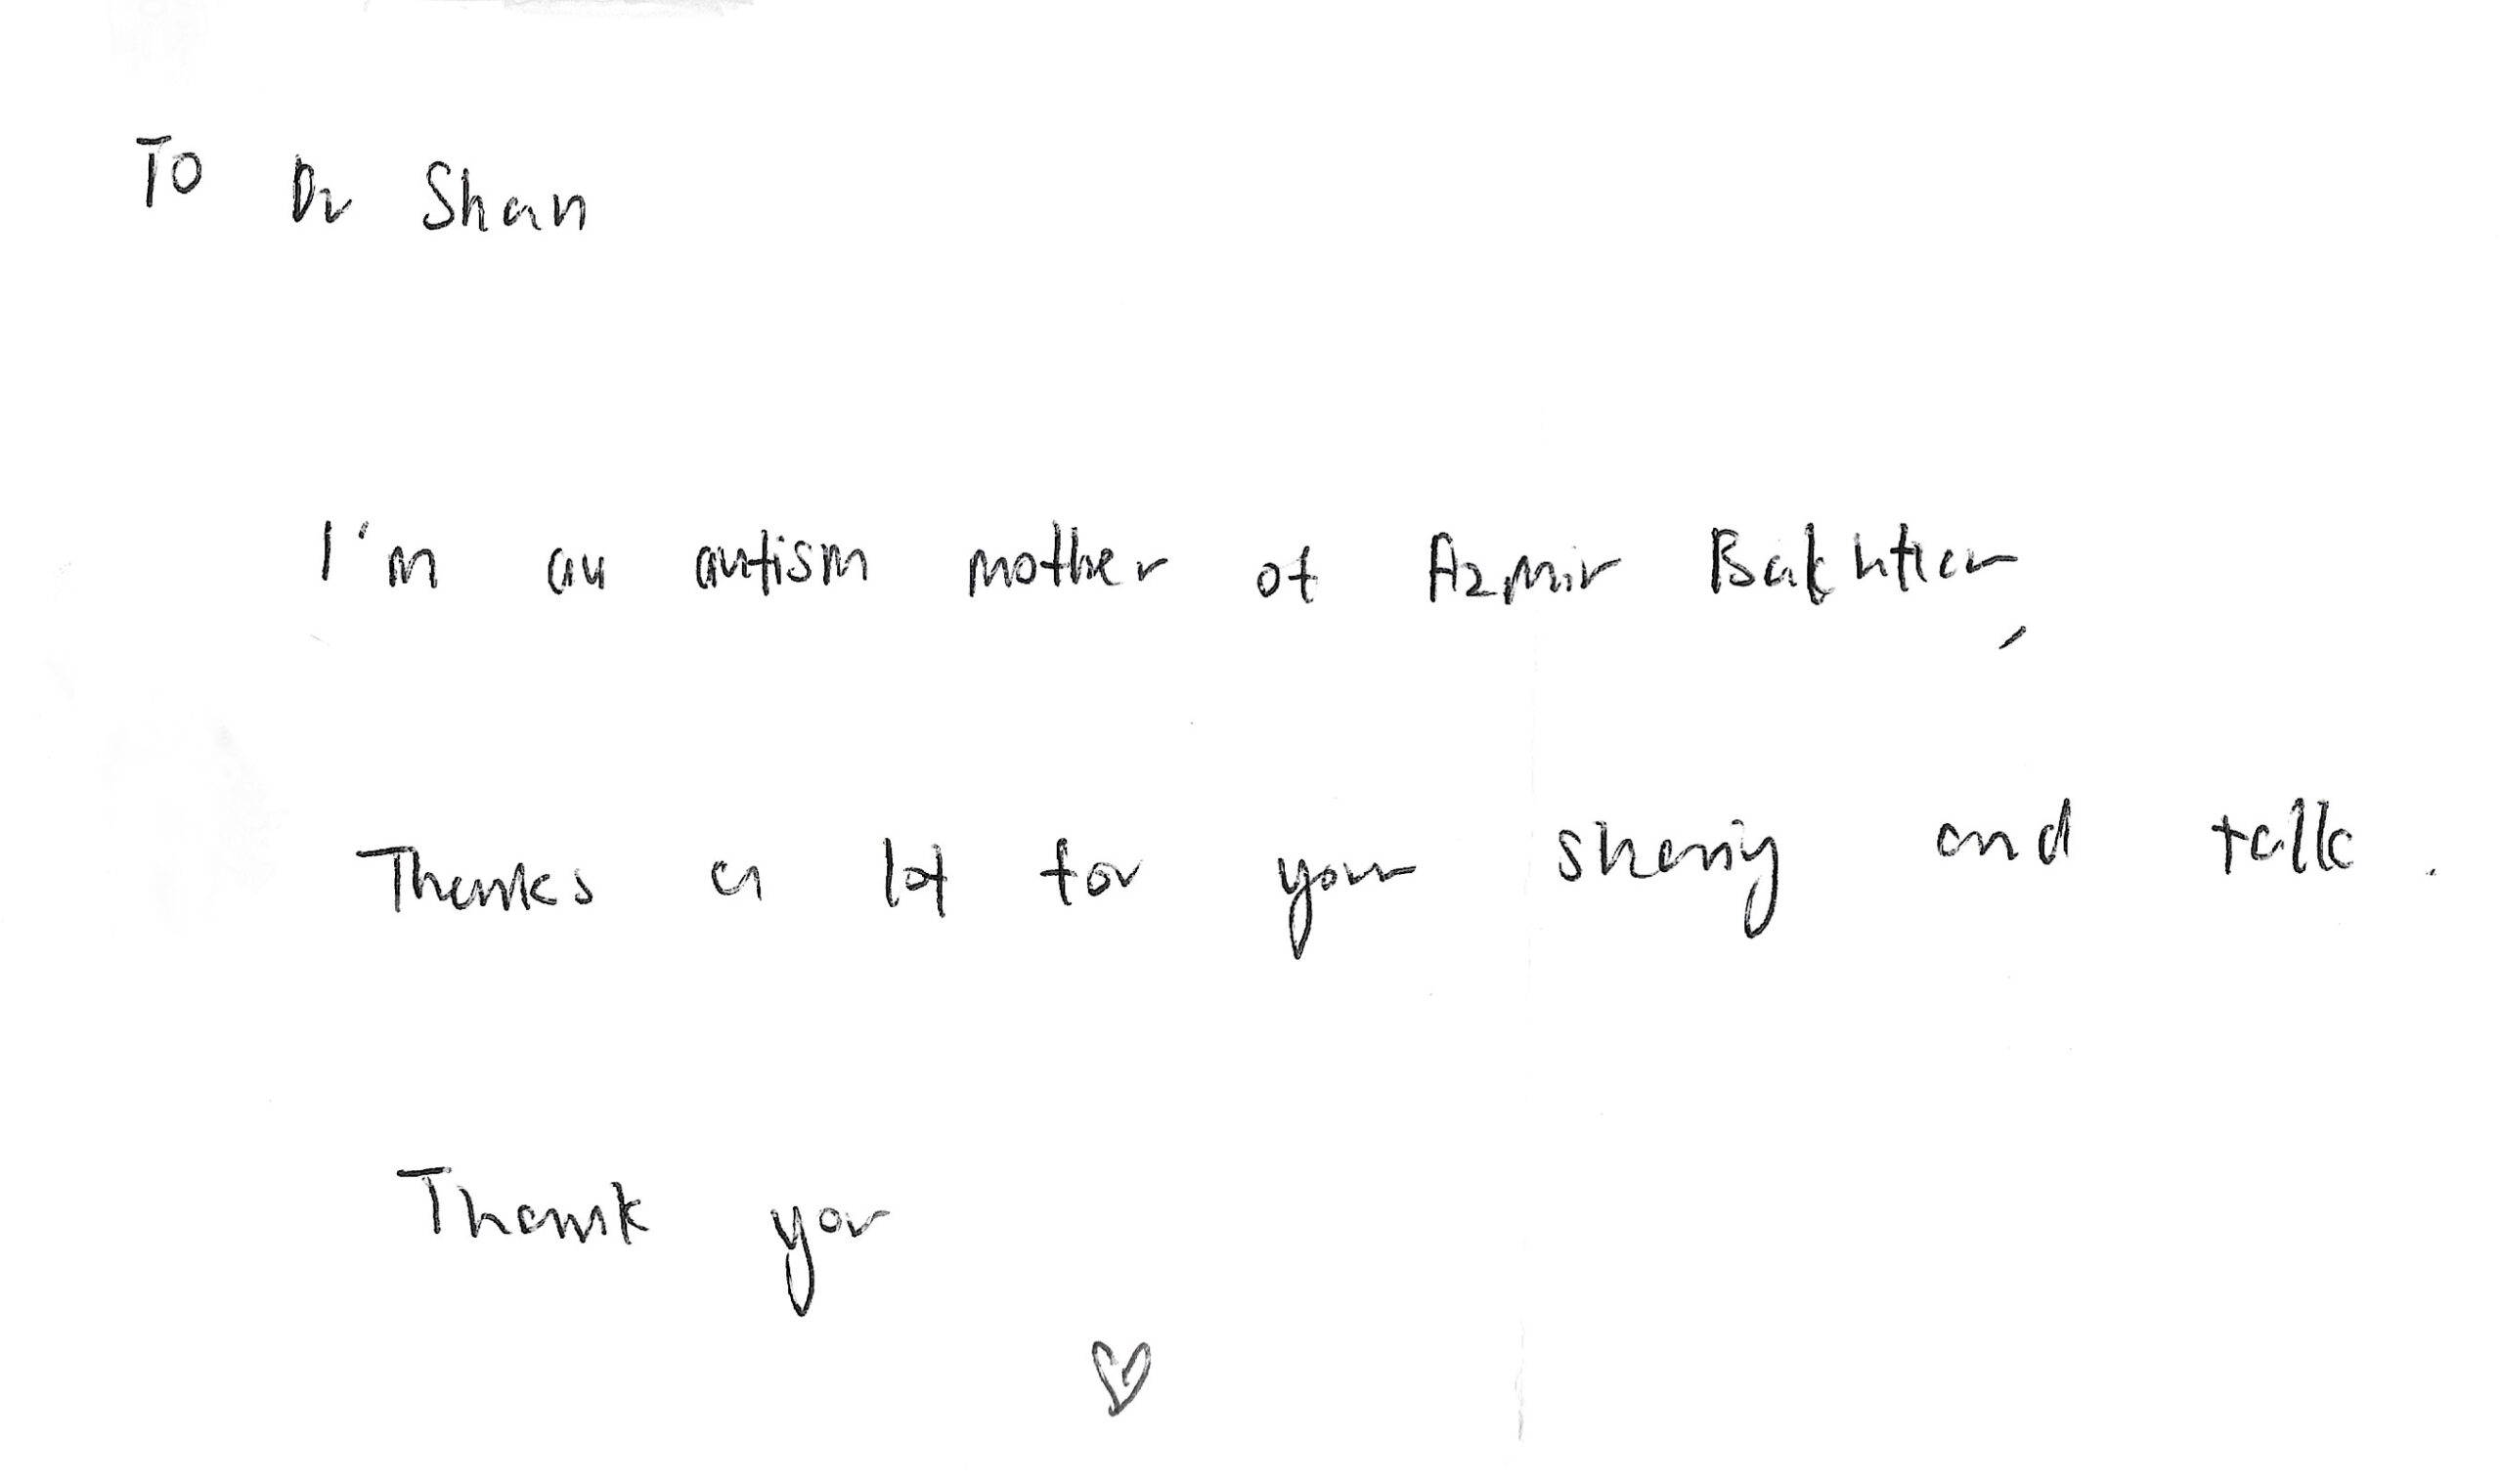 To Dr Shan
I'm an autism mother of Azmir Bakhtiar,
Thanks a lot for your sharing and talk.
Thank you
♡